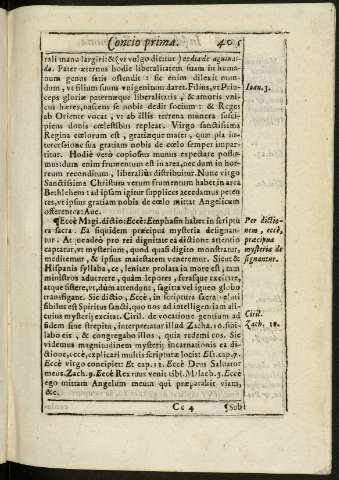 Concio prima. 405
rali manu largiri: & (vt vulgo dicitur)
humanum genus satis ostendit: sic enim dilexit mundum, vt filium suum vnigenitum daret. Filius, vt Princeps gloriæ paternæque liberalitatis, & amoris vnicus hæres, nascens se nobis dedit socium: & Reges
ab Oriente vocat, vt ab illis terrena munera suscipiens donis cœlestibus repleat. Virgo sanctissima
Regina cœlorum est, gratiæque mater, quæ pia intercessione sua gratiam nobis de cœlo semper impartitur. Hodiè verò copiosius munus expectare possumus: dum enim frumentum est in area, necdum in horreum reconditum, liberalius distribuitur. Nunc virgo
Sanctissima Christum verum frumentum habet in area
Bethlehem: ad ipsam igitur supplices accedamus petentes, vt ipsius gratiam nobis de cœlo mittat Angelicum
offerentes: Aue.
¶ Eccè Magi. dictio: Eccè: Emphasin habet in scriptura sacra. Ea siquidem præcipua mysteria designantur. At
captatur, vt mysterium, quod quasi digito monstratur,
meditemur, & ipsius maiestatem veneremur. Sicut &
Hispania syllaba, ce, leniter prolata in more est, tam
ministros aduertere, quàm lepores, feræsque excitare,
atque sistere, vt, dum attendunt, sagitta vel igneo globo
transfigant. Sic dictio, Eccè, in scriptura sacra
sibilus est Spiritus sancti, quo nos ad intelligentiam alicuius mysterij excitat. Ciril. de vocatione gentium ad
fidem sine strepitu, interpretatur illud Zacha. 10. sibilabo eis, & congregabo illos, quia redemi eos. Sic
videmus magnitudinem mysterij incarnationis ea dictione, eccè, explicari multis scripturæ locis: Esa. cap. 7.
Eccè virgo concipiet: Et cap. 12. Eccè Deus Saluator
meus. Zach. 9. Eccè Rex tuus venit tibi. Malach. 3. Eccè
ego mittam Angelum meum qui præparabit viam,
&c.
Cc 4 ¶ Sub
Ioan. 3.
Per dictionem, eccè,
præcipua
mysteria designantur.
Ciril.
Zach. 10.